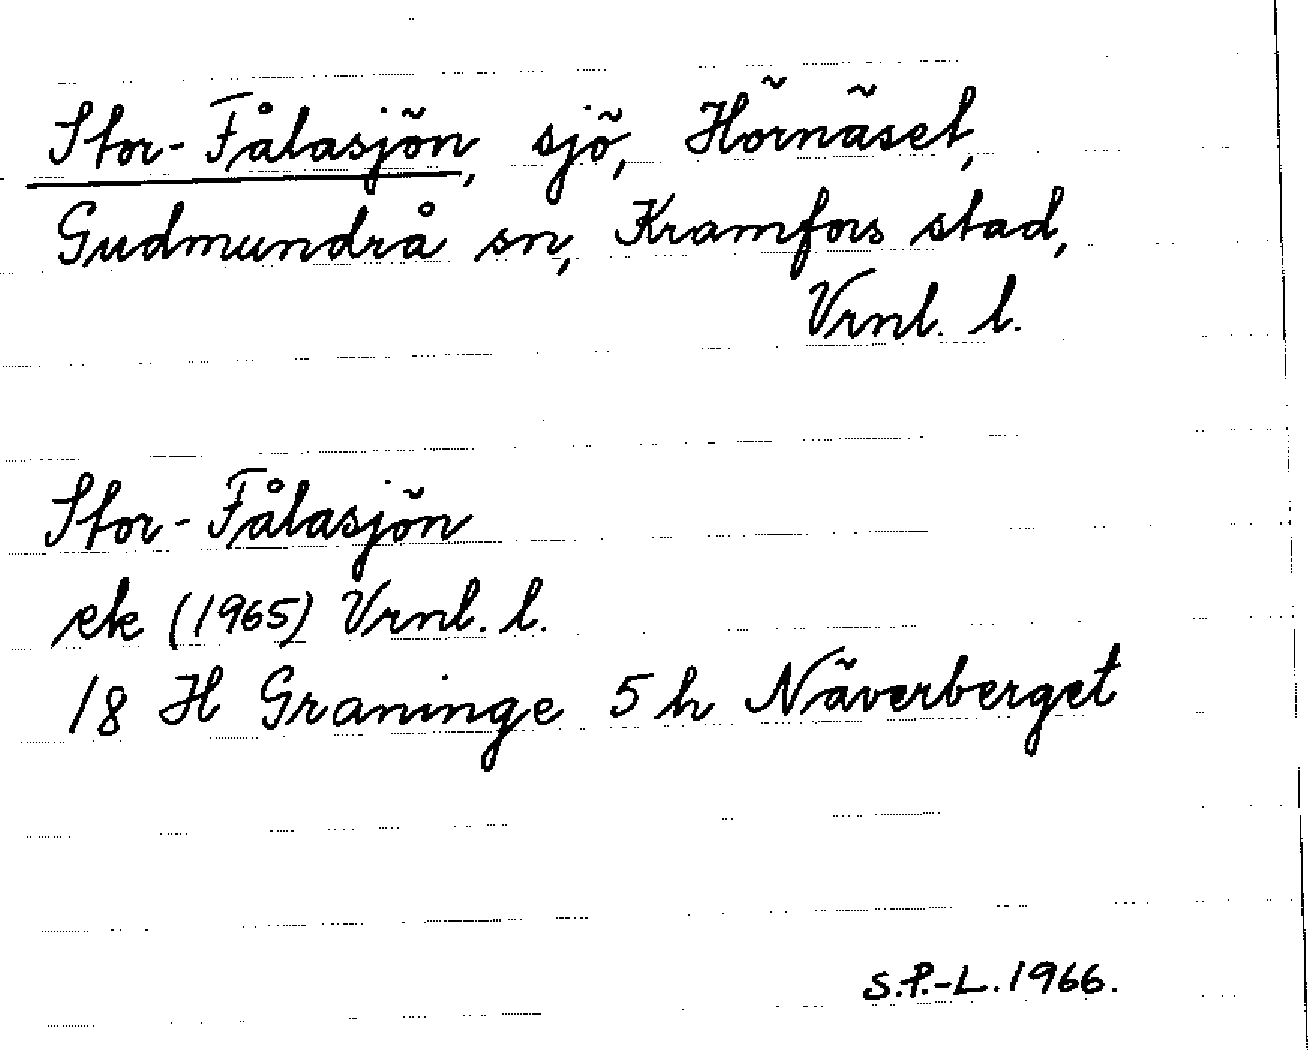 Stor-Fålasjön, sjö, Hörnäset,
Gudmundrå sn, Kramfors stad,
Vrnl. l.
Stor-Fålasjön
ek (1965) Vrnl. l.
18 H Graninge 5 h Näverberget
S.P.-L. 1966.